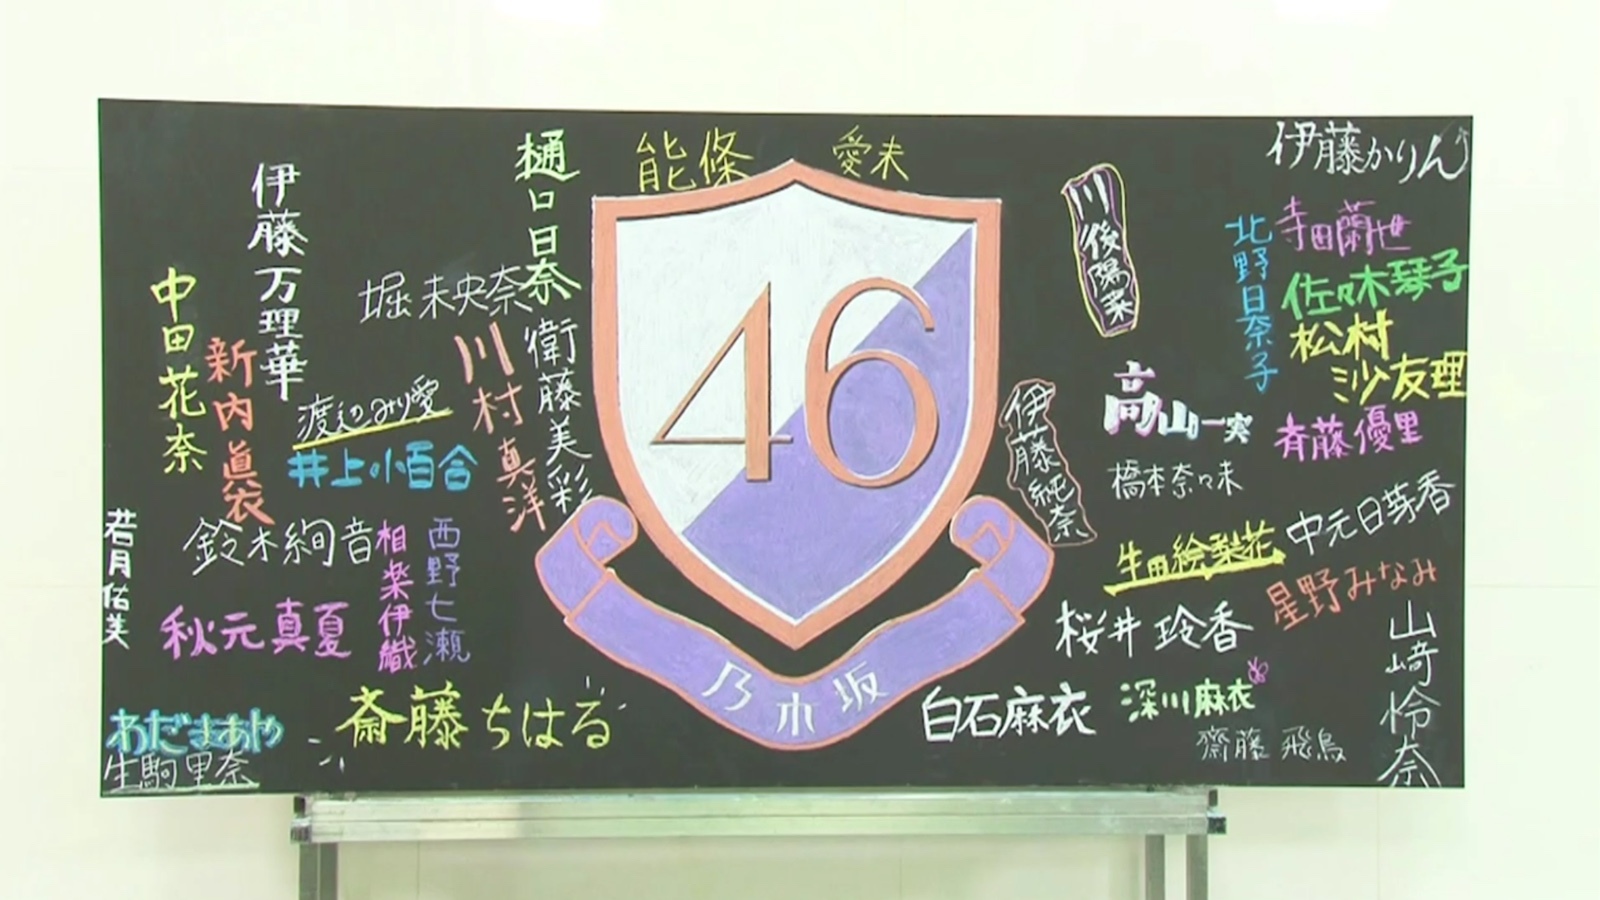 樋口日奈
能條愛未
伊藤かりん
伊藤万理華
川後陽菜
寺田蘭世
北野日奈子
佐々木琴子
中田花奈
堀未央奈
松村沙友理
新内眞衣
川村真洋
衛藤美彩
46
高山一実
斉藤優里
渡辺みり愛
井上小百合
伊藤純奈
橋本奈々未
中元日芽香
若月佑美
鈴木絢音
相楽伊織
西野七瀬
生田絵梨花
星野みなみ
秋元真夏
桜井玲香
山﨑怜奈
斎藤ちはる
乃木坂
白石麻衣
深川麻衣
わだまあや
生駒里奈
齋藤飛鳥